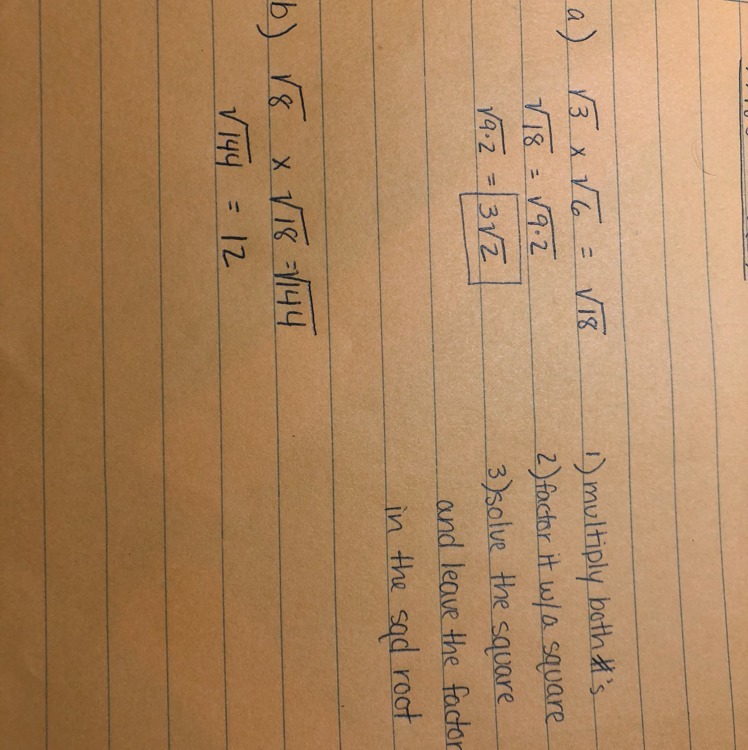 a) √3 x √6 = √18
√18 = √9·2
√9·2 = 3√2
1) multiply both #'s
2) factor it w/a square
3) solve the square
and leave the factor
in the sqd root
b) √8 x √18 = √144
√144 = 12